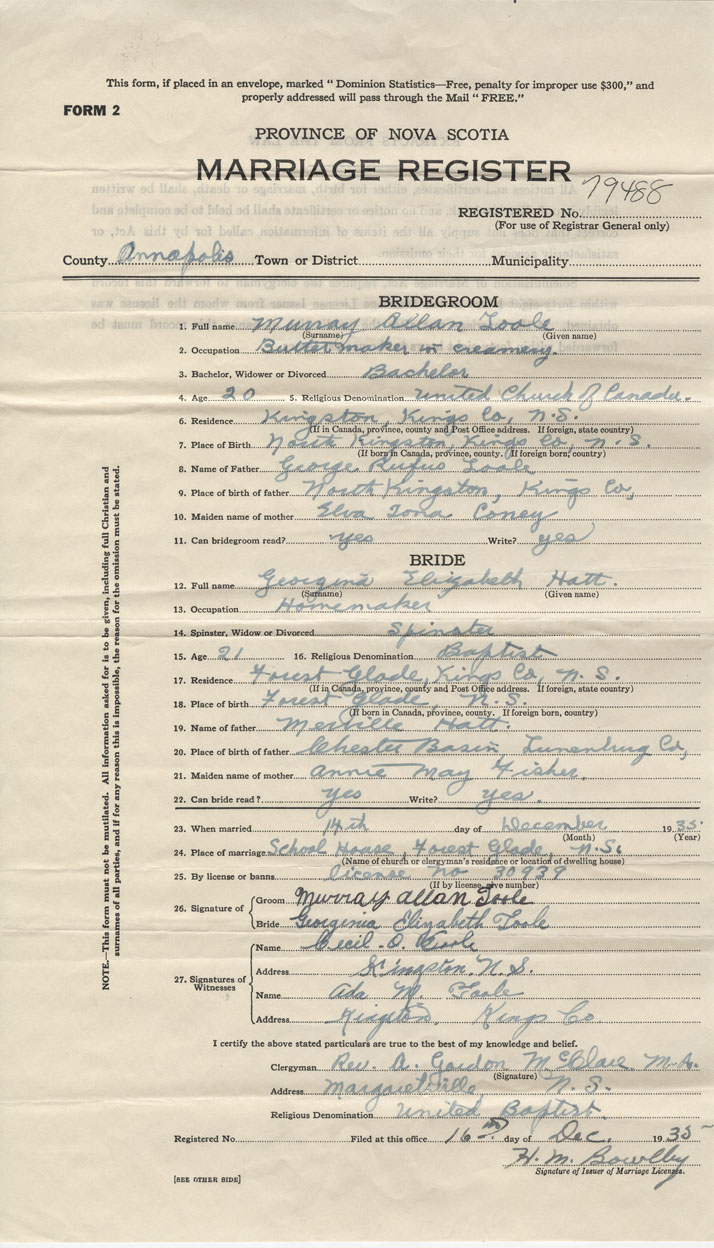 This form, if placed in an envelope, marked "Dominion Statistics—Free, penalty for improper use $300," and
properly addressed will pass through the Mail "FREE."
FORM 2
PROVINCE OF NOVA SCOTIA
MARRIAGE REGISTER
79488
REGISTERED No.
(For use of Registrar General only)
County Annapolis Town or District Municipality
BRIDEGROOM
1. Full name Murray Allan Toole
(Surname) (Given name)
2. Occupation Butter maker in creamery.
3. Bachelor, Widower or Divorced Bachelor
4. Age 20 5. Religious Denomination United Church of Canada.
6. Residence Kingston, Kings Co, N.S.
(If in Canada, province, county and Post Office address. If foreign, state country)
7. Place of Birth North Kingston, Kings Co, N.S.
(If born in Canada, province, county. If foreign born, country)
8. Name of Father George Rufus Toole
9. Place of birth of father North Kingston, Kings Co,
10. Maiden name of mother Elva Coney
11. Can bridegroom read? yes Write? yes
BRIDE
12. Full name Georgina Elizabeth Hatt.
(Surname) (Given name)
13. Occupation Homemaker
14. Spinster, Widow or Divorced Spinster
15. Age 21 16. Religious Denomination Baptist
17. Residence Forest Glade, Kings Co, N.S.
(If in Canada, province, county and Post Office address. If foreign, state country)
18. Place of Birth Forest Glade, N.S.
(If born in Canada, province, county. If foreign born, country)
19. Name of father Merville Hatt.
20. Place of birth of father Chester Basin, Lunenburg Co,
21. Maiden name of mother Annie May Fisher.
22. Can bride read? yes Write? yes.
23. When married 14th day of December 1935
(Month) (Year)
24. Place of marriage School House, Forest Glade, N.S.
(Name of church or clergyman's residence or location of dwelling house)
25. By license or banns license no 30939
(If by license, give number)
26. Signature of Groom Murray Allan Toole
Bride Georginia Elizabeth Toole
27. Signatures of Witnesses Name Cecil O.
Address Kingston N.S.
Name Ada M. Toole
Address Kingston, Kings Co.
I certify the above stated particulars are true to the best of my knowledge and belief.
Clergyman Rev. A. Gordon McClare M.A.
(Signature)
Address Margaretville N.S.
Religious Denomination United Baptist.
Registered No. Filed at this office 16th day of Dec. 1935
H. M. Bowlby
Signature of Issuer of Marriage Licenses.
[SEE OTHER SIDE]
NOTE.—This form must not be mutilated. All information asked for is to be given, including full Christian and
surnames of all parties, and if for any reason this is impossible, the reason for the omission must be stated.